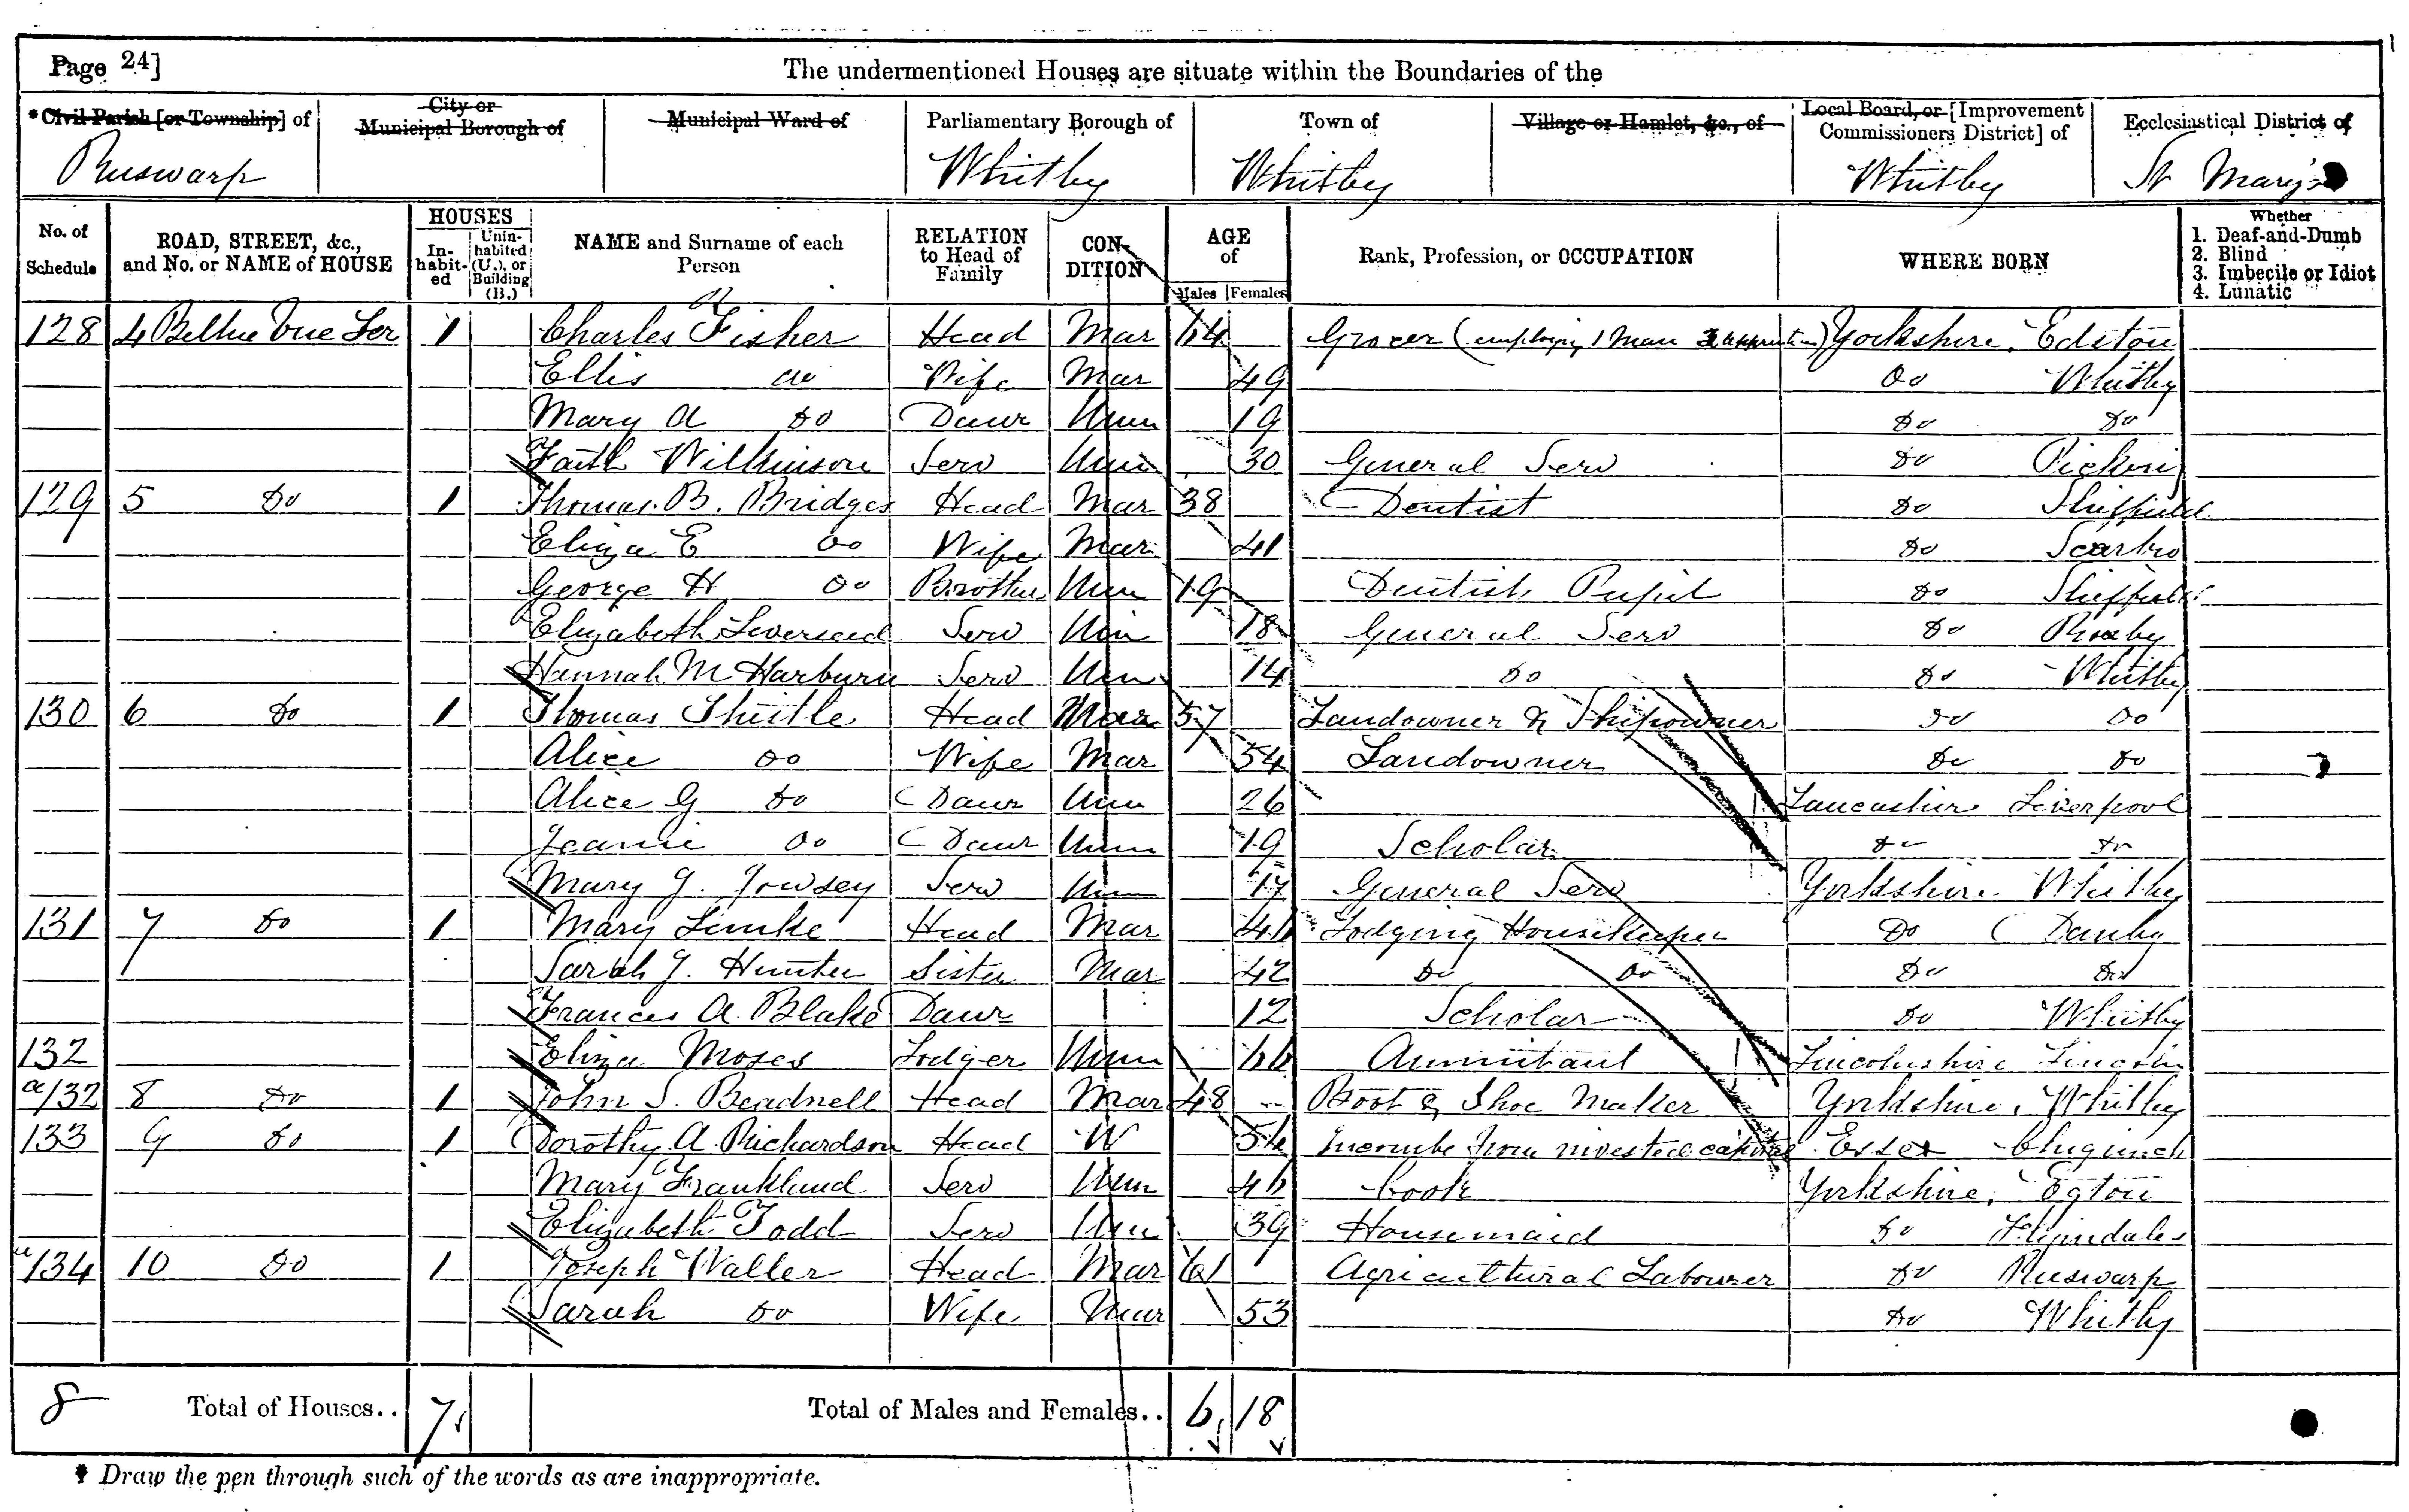 Page 24]
The undermentioned Houses are situate within the Boundaries of the
*Civil Parish [or Township] of | City or Municipal Borough of | Municipal Ward of | Parliamentary Borough of | Town of | Village or Hamlet, &c., of | Local Board, or [Improvement Commissioners District] of | Ecclesiastical District of
Ruswarp | Whitby | Whitby | Whitby | St Mary's
No. of Schedule | ROAD, STREET, &c., and No. or NAME of HOUSE | HOUSES In-habit-ed | Unin-habited (U.), or Building (B.) | NAME and Surname of each Person | RELATION to Head of Family | CON-DITION | AGE of Males | Females | Rank, Profession, or OCCUPATION | WHERE BORN | Whether 1. Deaf-and-Dumb 2. Blind 3. Imbecile or Idiot 4. Lunatic
128 4 Bellue Vue Ter 1 Charles Fisher Head Mar 64 Grocer (employing 1 Man 3 Yorkshire, Edston
Ellis do Wife Mar 49 Do Whitby
Mary A Do Daur Unm 19 Do Do
Faith Wilkinson Serv Unm 30 General Serv Do
129 5 Do 1 Thomas B. Bridges Head Mar 38 Dentist Do Sheffield
Eliza E Do Wife Mar 41 Do Scarbro
George H Do Brother Unm 19 Dentists Pupil Do Sheffield
Elizabeth Leverseed Serv Unm 18 General Serv Do Roxby
Hannah M Harburn Serv Unm 14 Do Do Whitby
130 6 Do 1 Thomas Thistle Head Mar 57 Landowner & Shipowner Do Do
Alice Do Wife Mar 54 Landowner Do Do
Alice G Do Daur Unm 26 Lancashire Liverpool
Jeanie Do Daur Unm 19 Scholar Do Do
Mary J. Jowsey Serv Unm 17 General Serv Yorkshire Whitby
131 7 Do 1 Mary Limke Head Mar 46 Lodging Housekeeper Do Danby
Sarah J. Hunter Sister Mar 42 Do Do Do Do
Frances A Blake Daur 12 Scholar Do Whitby
132 Eliza Moses Lodger Unm 66 Annuitant Lincolnshire Lincoln
a/132 8 Do 1 John S. Beadnell Head Mar 48 Boot & Shoe Maker Yorkshire, Whitby
133 9 Do 1 Dorothy A Richardson Head W 56 Income from invested capital Essex
Mary Frankland Serv Unm 46 Cook Yorkshire, Egton
Elizabeth Todd Serv Unm 39 Housemaid Do
134 10 Do 1 Joseph Waller Head Mar 61 Agricultural Labourer Do Ruswarp
Sarah Do Wife Mar 53 Do Whitby
8 Total of Houses.. 7 Total of Males and Females.. 6 18
* Draw the pen through such of the words as are inappropriate.